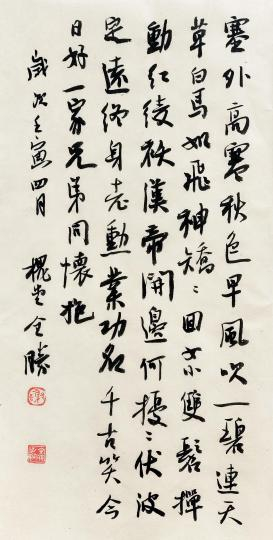 塞外高寒秋色早風吹一碧連天
草白馬如飛神矯〻回女小雙鬟撣
動紅綾袄漢帝開邊何擾〻伏波
定遠終身老勳業功名千古笑今
日好一家兄弟同懷抱
歲次壬寅四月 堂全勝